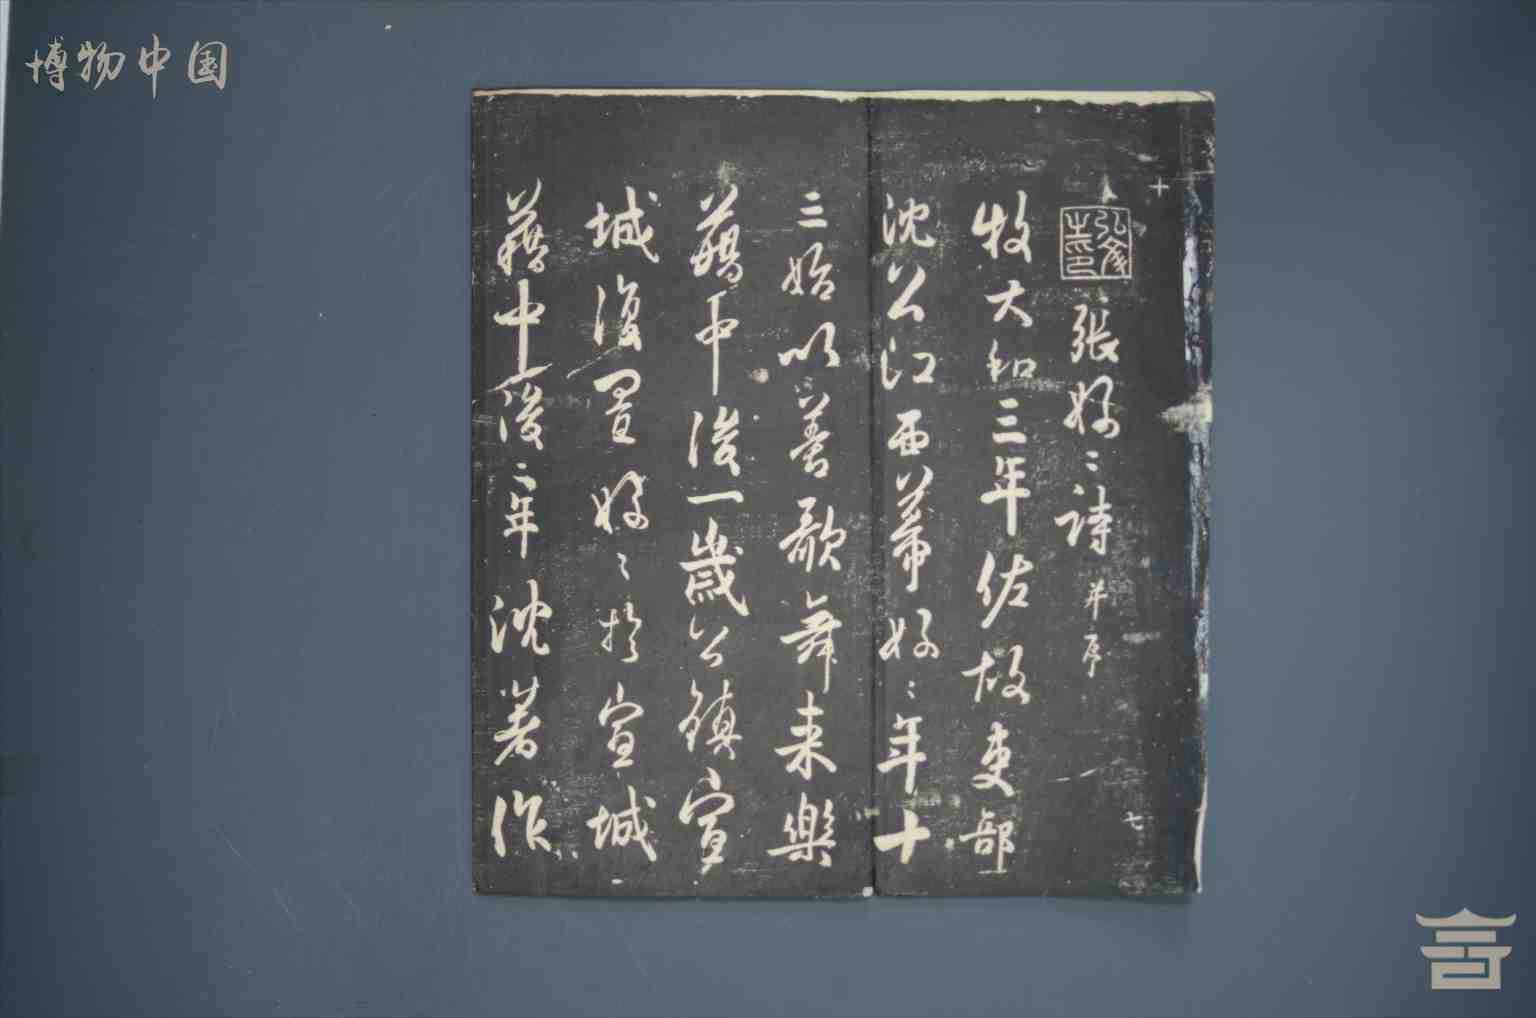 博物中国
十
张好〻诗 并序
牧大和三年佐故吏部
沈公江西幕好〻年十
三始以善歌舞来乐
籍中後一岁公镇宣
城復置好〻於宣城
籍中後二年沈著作
七